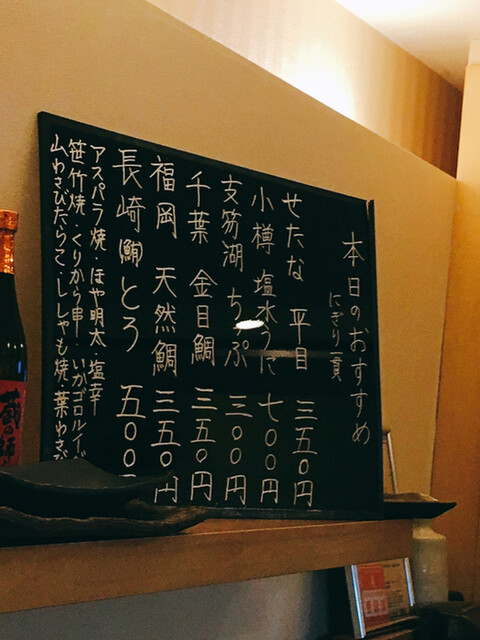 本日のおすすめ
にぎり一貫
せたな 平目 三五〇円
小樽 塩水うに 七〇〇円
支笏湖 ちっぷ 三〇〇円
千葉 金目鯛 三五〇円
福岡 天然鯛 三五〇円
長崎 鮪とろ 五〇〇円
アスパラ焼・ほや明太・塩辛
笹竹焼・くりから串・いかゴロルイベ
山わさびたらこ・ししゃも焼・葉わさび